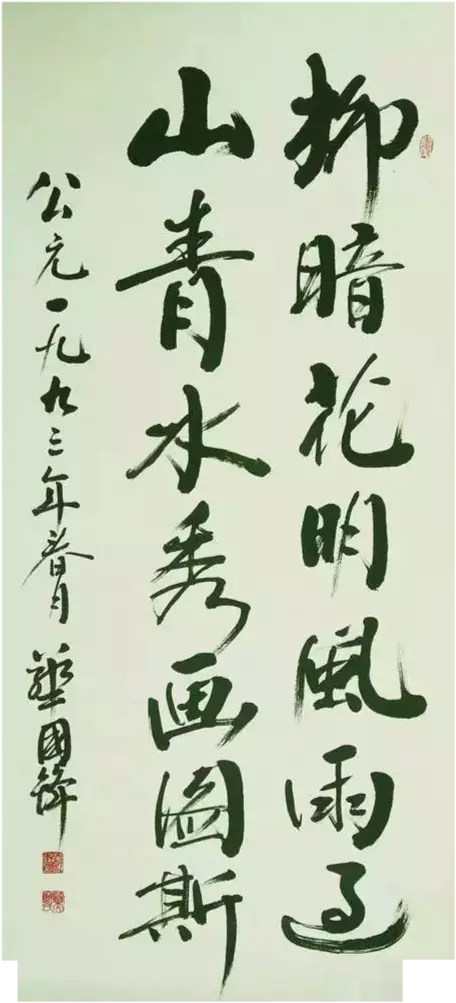 柳暗花明風雨過
山青水秀画图斯
公元一九九三年春月 華國鋒